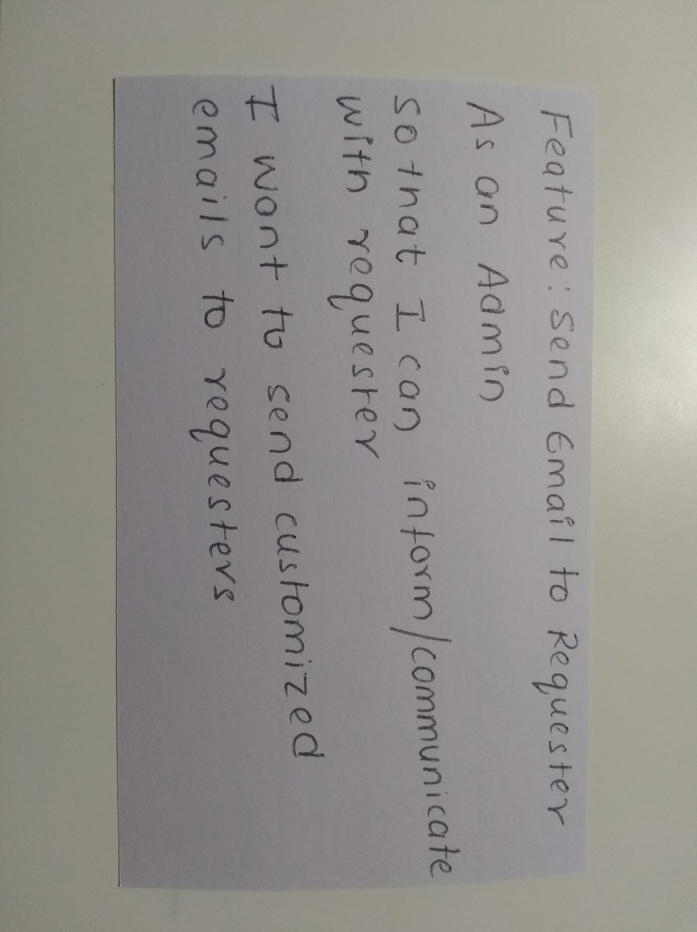 Feature: Send Email to Requester
As an Admin
So that I can inform/communicate
with requester
I want to send customized
emails to requesters